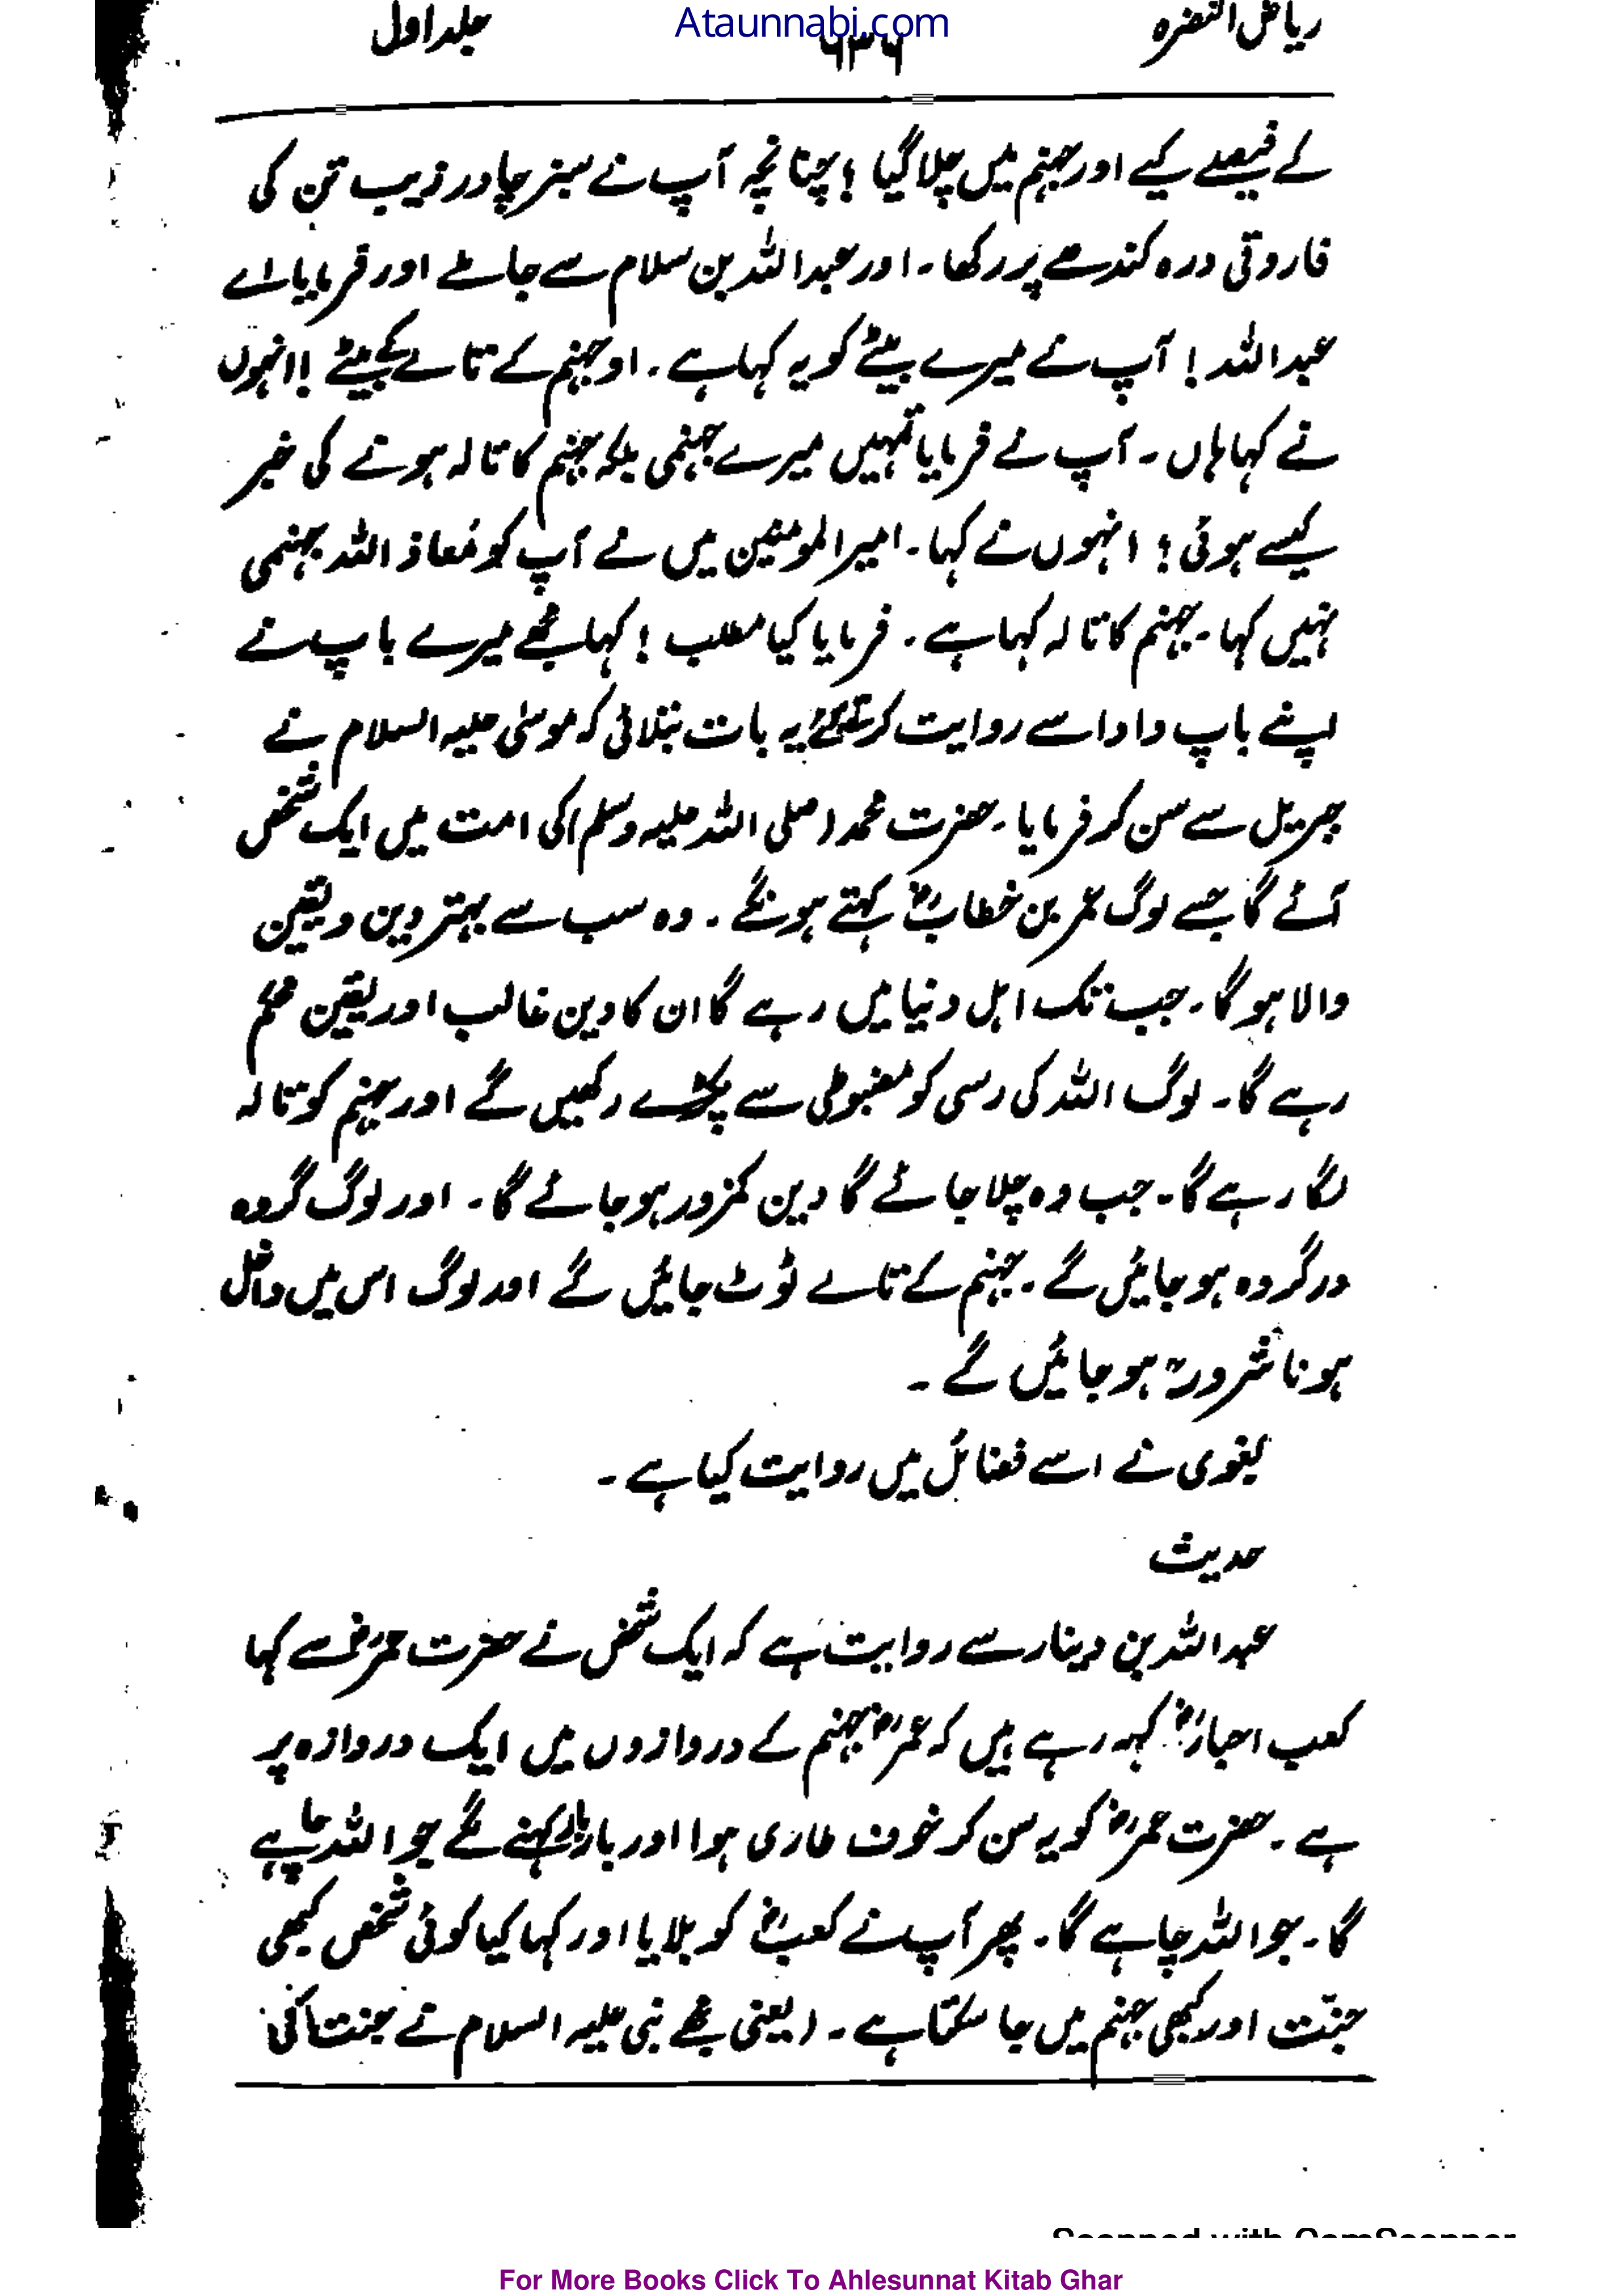 ریاض النضرہ
Ataunnabi.com
۶۳۶
جلد اول
کے فیصلے کیے اور جہنم میں چلا گیا ؛ چنانچہ آپ نے سبز چادر زیب تن کی
فاروقی درہ کندھے پر رکھا۔ اور عبداللہ بن سلام سے جا ملے اور فرمایا اے
عبداللہ ! آپ نے میرے بیٹے کو یہ کہا ہے ۔ او جہنم کے تالے کے بیٹے ! انہوں
نے کہا ہاں ۔ آپ نے فرمایا تمہیں میرے جہنمی بلکہ جہنم کا تالہ ہونے کی خبر
کیسے ہوئی ؛ انہوں نے کہا ۔ امیر المومنین میں نے آپ کو مُعاذ اللہ جہنمی
نہیں کہا ۔ جہنم کا تالہ کہا ہے ۔ فرمایا کیا مطلب ! کہا مجھے میرے باپ نے
اپنے باپ دادا سے روایت کرتے ہوئے یہ بات بتلائی کہ موسیٰ علیہ السلام نے
جبریل سے سن کر فرمایا ۔ حضرت محمد (صلی اللہ علیہ وسلم) کی امت میں ایک شخص
آئے گا جسے لوگ عمر بن خطابؓ کہتے ہونگے ۔ وہ سب سے بہتر دین و یقین
والا ہو گا ۔ جب تک اہل دنیا میں رہے گا ان کا دین غالب اور یقین محکم
رہے گا ۔ لوگ اللہ کی رسی کو مضبوطی سے پکڑے رکھیں گے اور جہنم کو تالہ
لگا رہے گا ۔ جب وہ چلا جائے گا دین کمزور ہو جائے گا ۔ اور لوگ گروہ
در گروہ ہو جائیں گے ۔ جہنم کے تالے ٹوٹ جائیں گے اور لوگ اس میں داخل
ہونا شروع ہو جائیں گے ۔
بغوی نے اسے فضائل میں روایت کیا ہے ۔
حدیث
عبداللہ بن دینار سے روایت ہے کہ ایک شخص نے حضرت عمرؓ سے کہا
کعب احبارؓ کہہ رہے ہیں کہ عمرؓ جہنم کے دروازوں میں ایک دروازہ پر
ہے ۔ حضرت عمرؓ کو یہ سن کر خوف طاری ہوا اور بار بار کہنے لگے جو اللہ چاہے
گا ۔ جو اللہ چاہے گا ۔ پھر آپ نے کعبؓ کو بلایا اور کہا کیا کوئی شخص کبھی
جنّت اور کبھی جہنم میں جا سکتا ہے ۔ (یعنی مجھے نبی علیہ السلام نے جنت کی
For More Books Click To Ahlesunnat Kitab Ghar